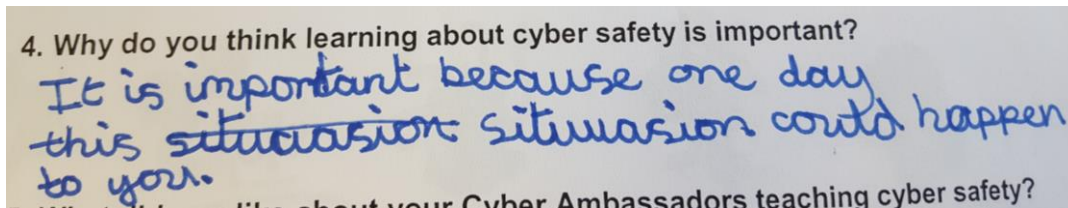 4. Why do you think learning about cyber safety is important?
It is important because one day
this situaasion situuasion could happen
to you.
like about your Cyber Ambassadors teaching cyber safety?